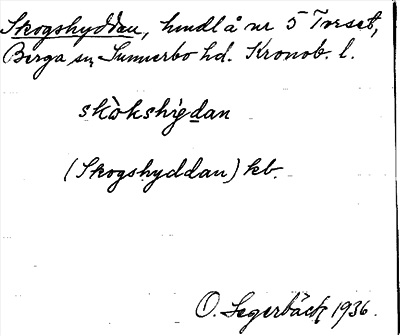 Skogshyddan, hmdl å nr 5 Treset,
Berga sn Sunnerbo hd. Kronob. l.
skòkshỳdan
(Skogshyddan) kb.
O. Segerbäck 1936.